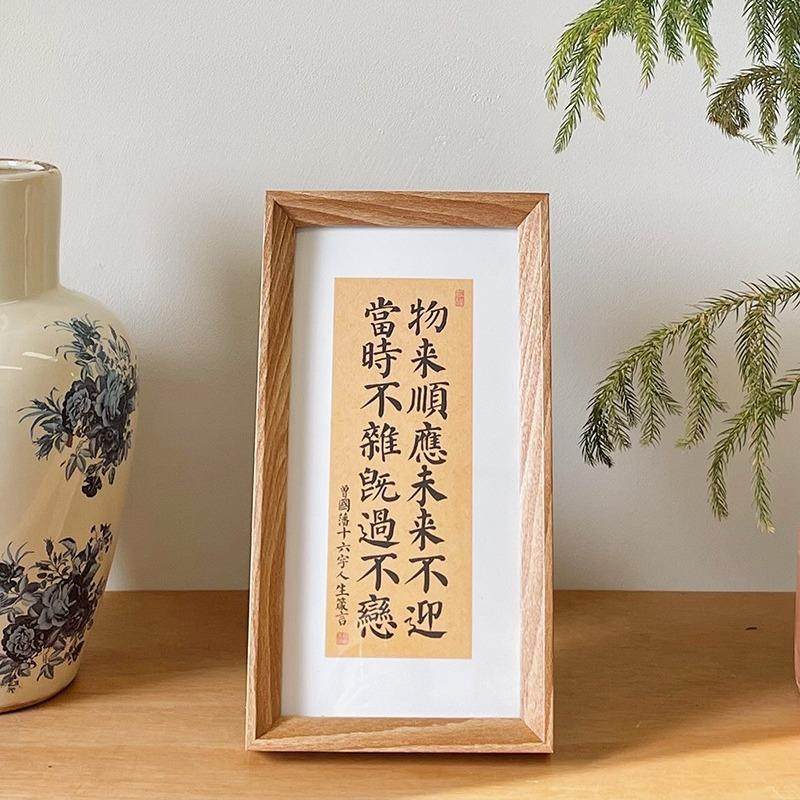 物来順應未来不迎
當時不雜既過不戀
曾國藩十六字人生箴言